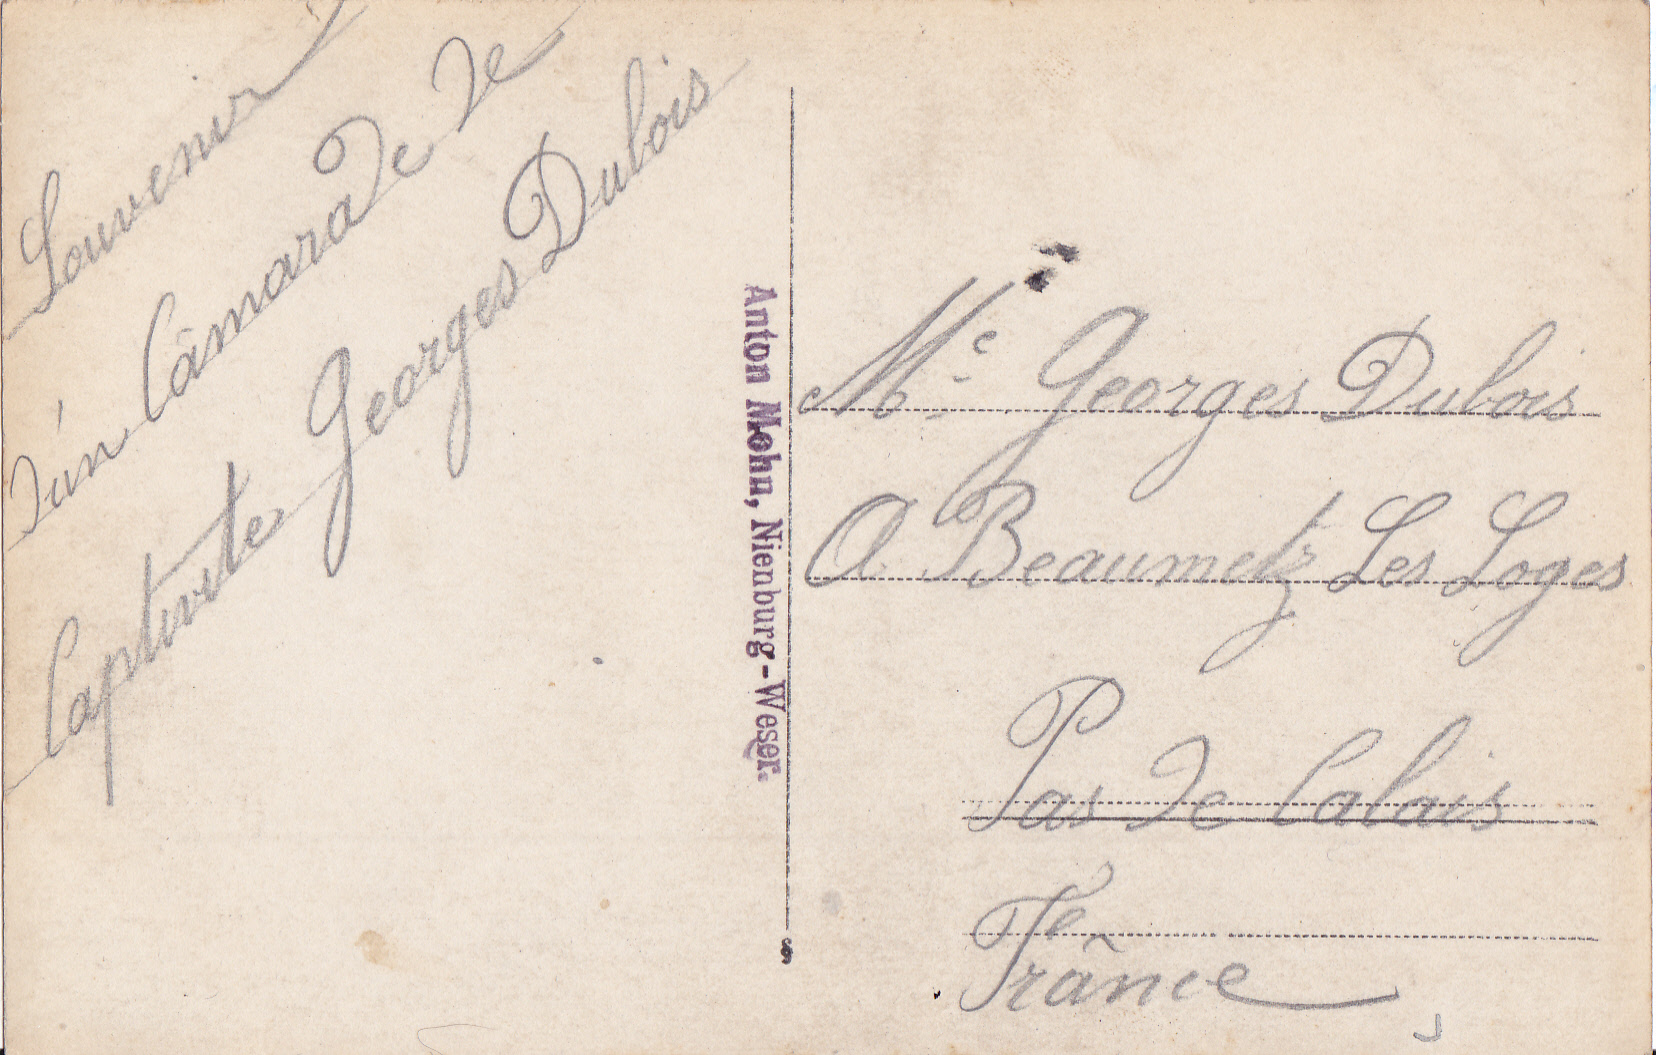 Souvenir
d'un Câmarade de
Captivite Georges Dubois
Anton Mohn, Nienburg-Weser.
Me Georges Dubois
A Beaumetz Les Loges
Pas de Calais
Frânce